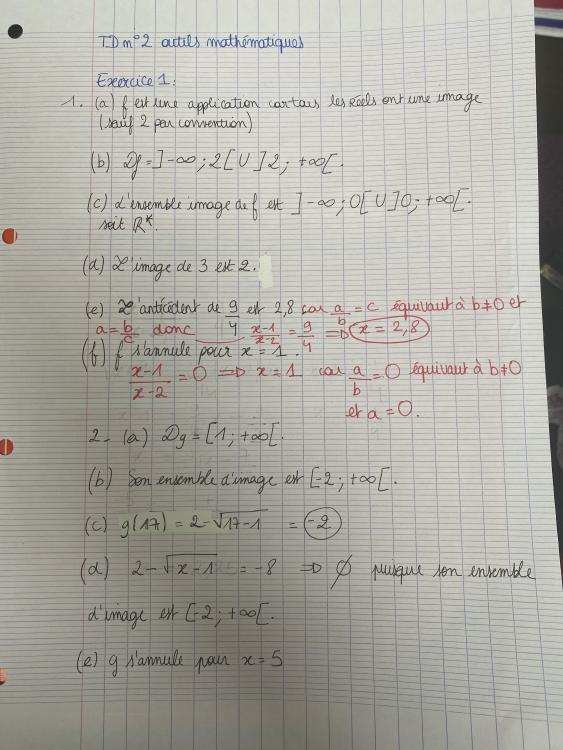 TD n°2 outils mathématiques
Exercice 1 :
1. (a) f est une application car tous les réels ont une image
(sauf 2 par convention)
(b) Df = ]-∞ ; 2[ U ]2 ; +∞[.
(c) L'ensemble image de f est ]-∞ ; 0[ U ]0 ; +∞[.
soit R*.
(d) L'image de 3 est 2.
(e) L'antécédent de 9/4 est 2,8 car a/b = c équivaut à b≠0 et
a = b/c donc x-1/x-2 = 9/4 => x = 2,8
(f) f s'annule pour x = 1.
x-1/x-2 = 0 => x = 1 car a/b = 0 équivaut à b≠0
et a = 0.
2- (a) Dg = [1 ; +∞[.
(b) Son ensemble d'image est [-2 ; +∞[.
(c) g(17) = 2-√17-1 = -2
(d) 2-√x-1 = -8 => ∅ puisque son ensemble
d'image est [-2 ; +∞[.
(e) g s'annule pour x = 5